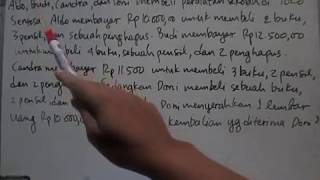 Aldo, Budi, Candra, dan Doni membeli peralatan sekolah di Toko
Sentosa. Aldo membayar Rp 10.000,00 untuk membeli 2 buku,
3 pensil, sebuah penghapus. Budi membayar Rp 12.500,00
untuk beli 4 buku, sebuah pensil, dan 2 penghapus.
Candra membayar Rp 11.500 untuk membeli 3 buku, 2 pensil,
dan 2 peng Sedangkan Doni membeli sebuah buku,
2 pensil, Doni menyerahkan 1 lembar
uang Rp 10.000, kembalian yg diterima Doni?